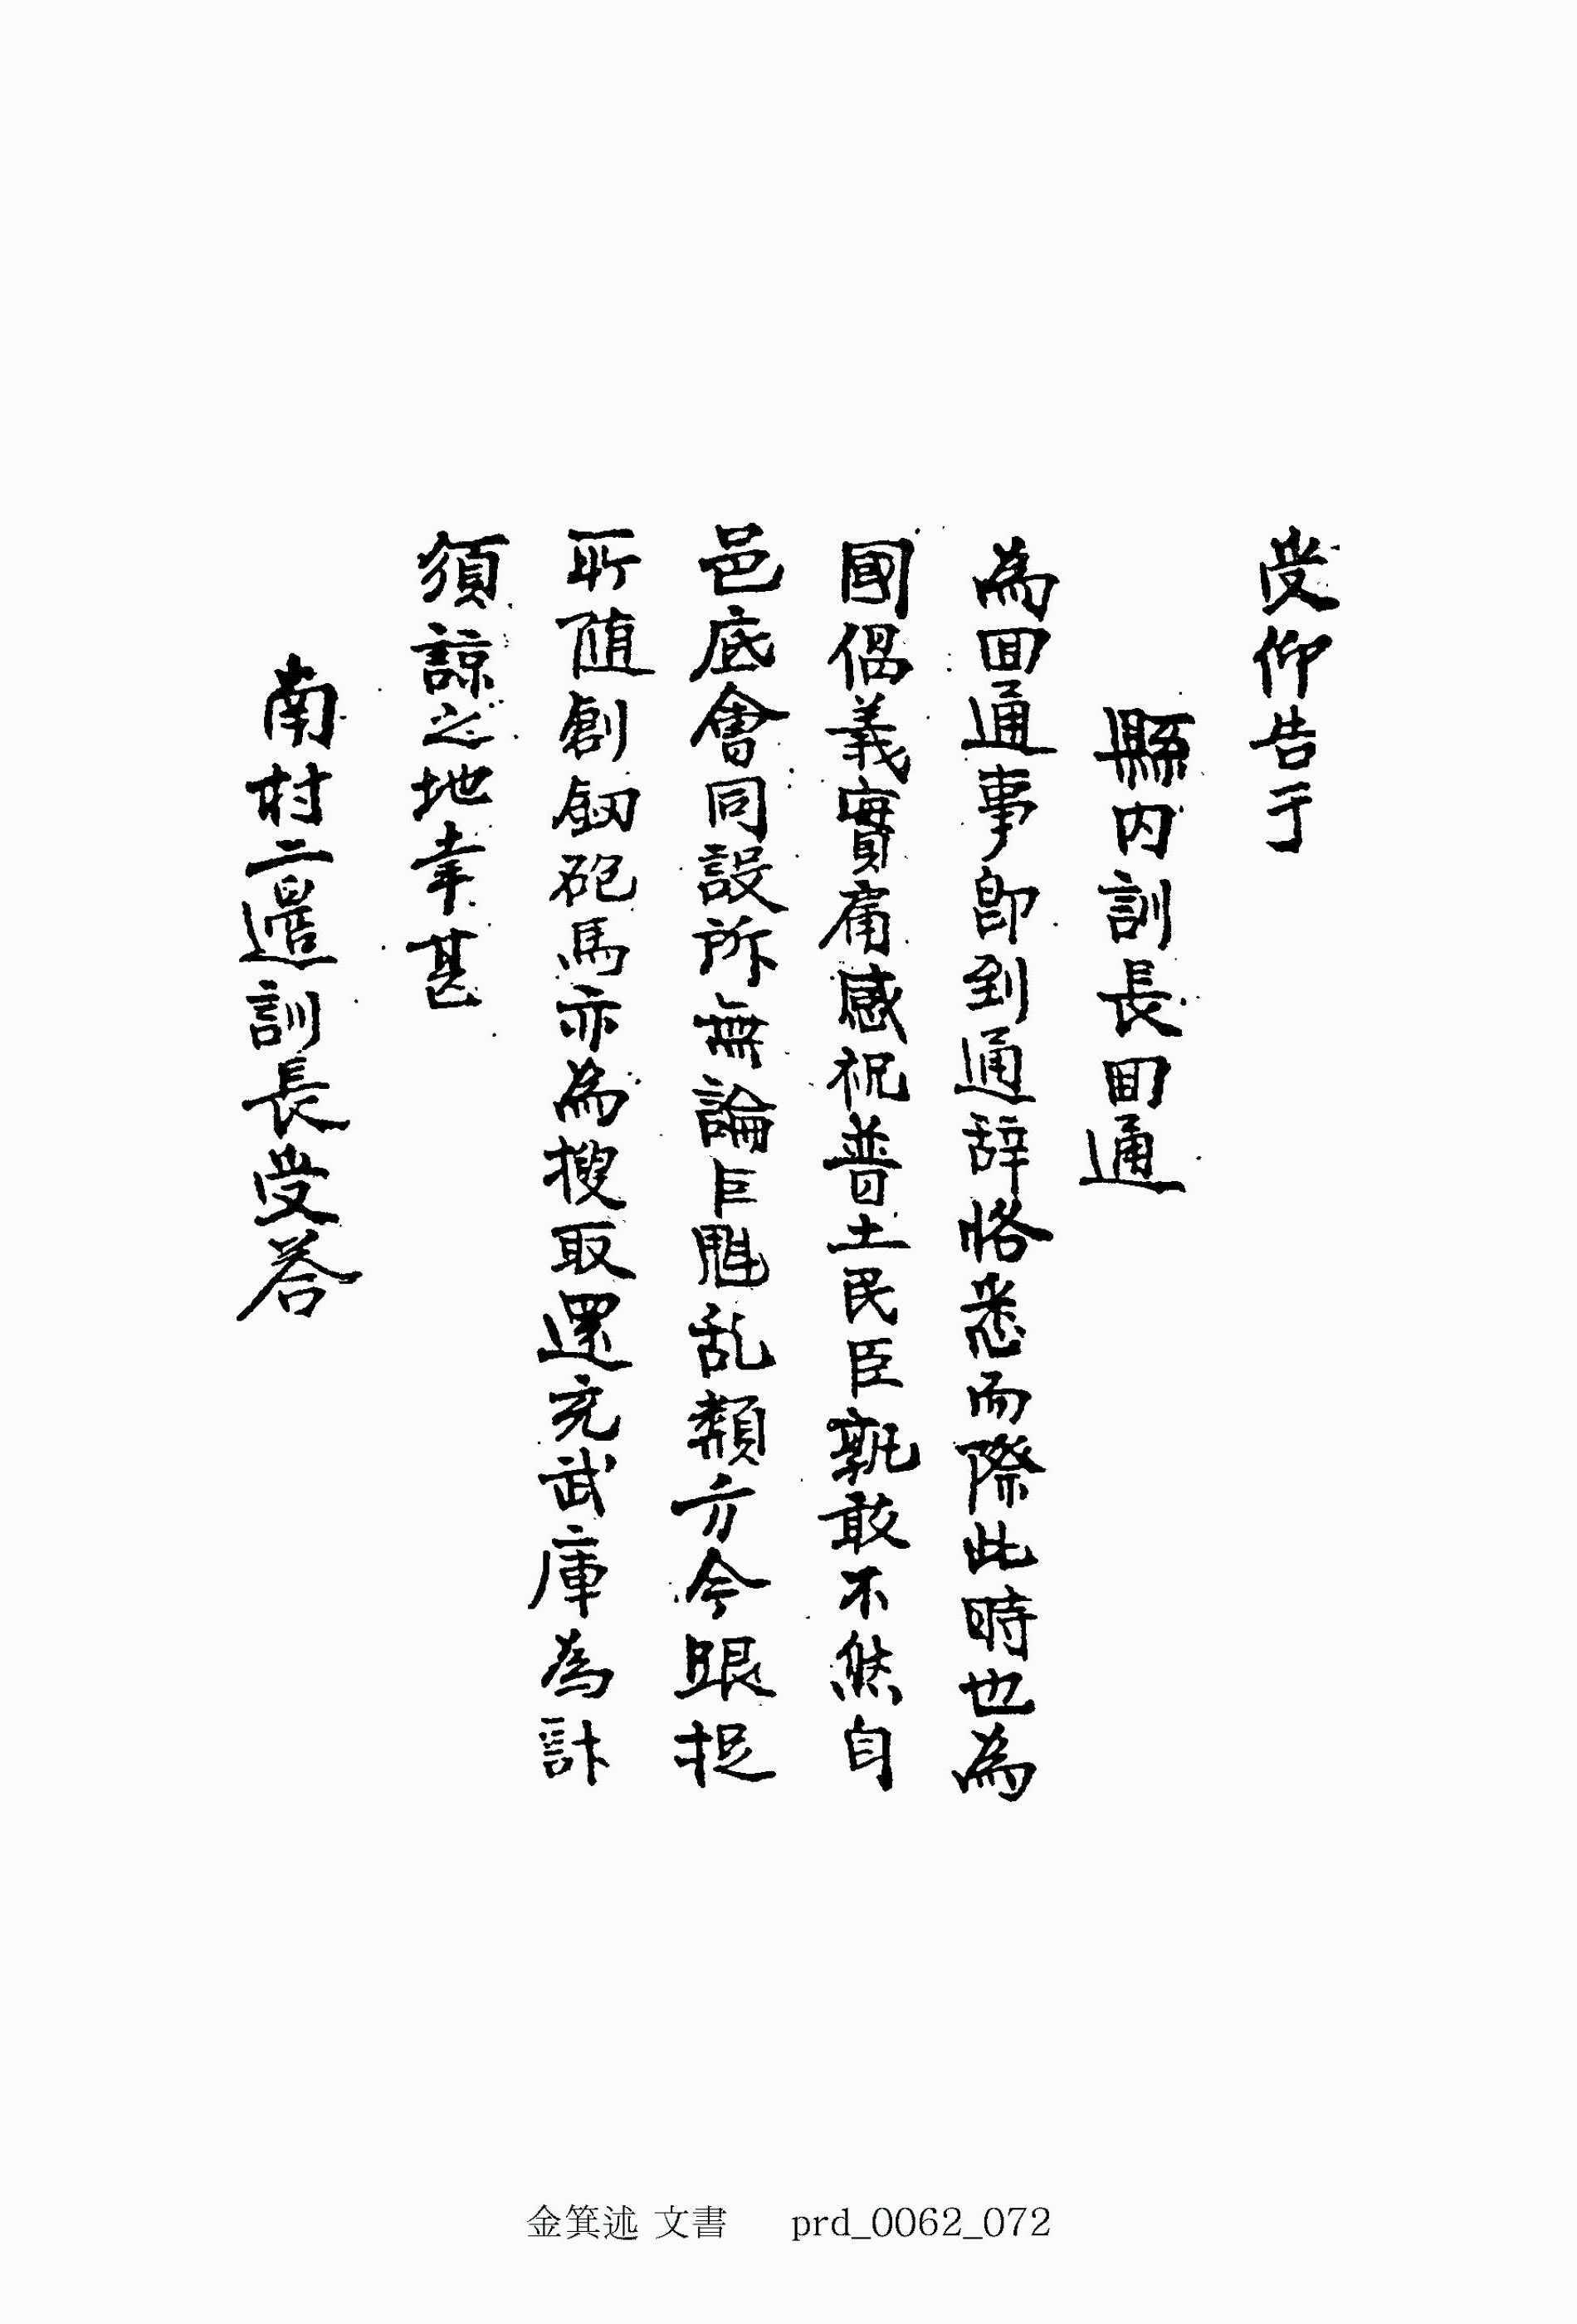 受仰告于
縣内訓長回通
為回通事即到通辞恪悉而際此時也為
國倡義實庸感祝普土民臣孰敢不然自
邑底會同設所無論巨魁乱類方今跟捉
所随創釼砲馬亦為搜取還充武庫為計
須諒之地幸甚
南村二邊訓長受答
金箕述 文書 prd_0062_072